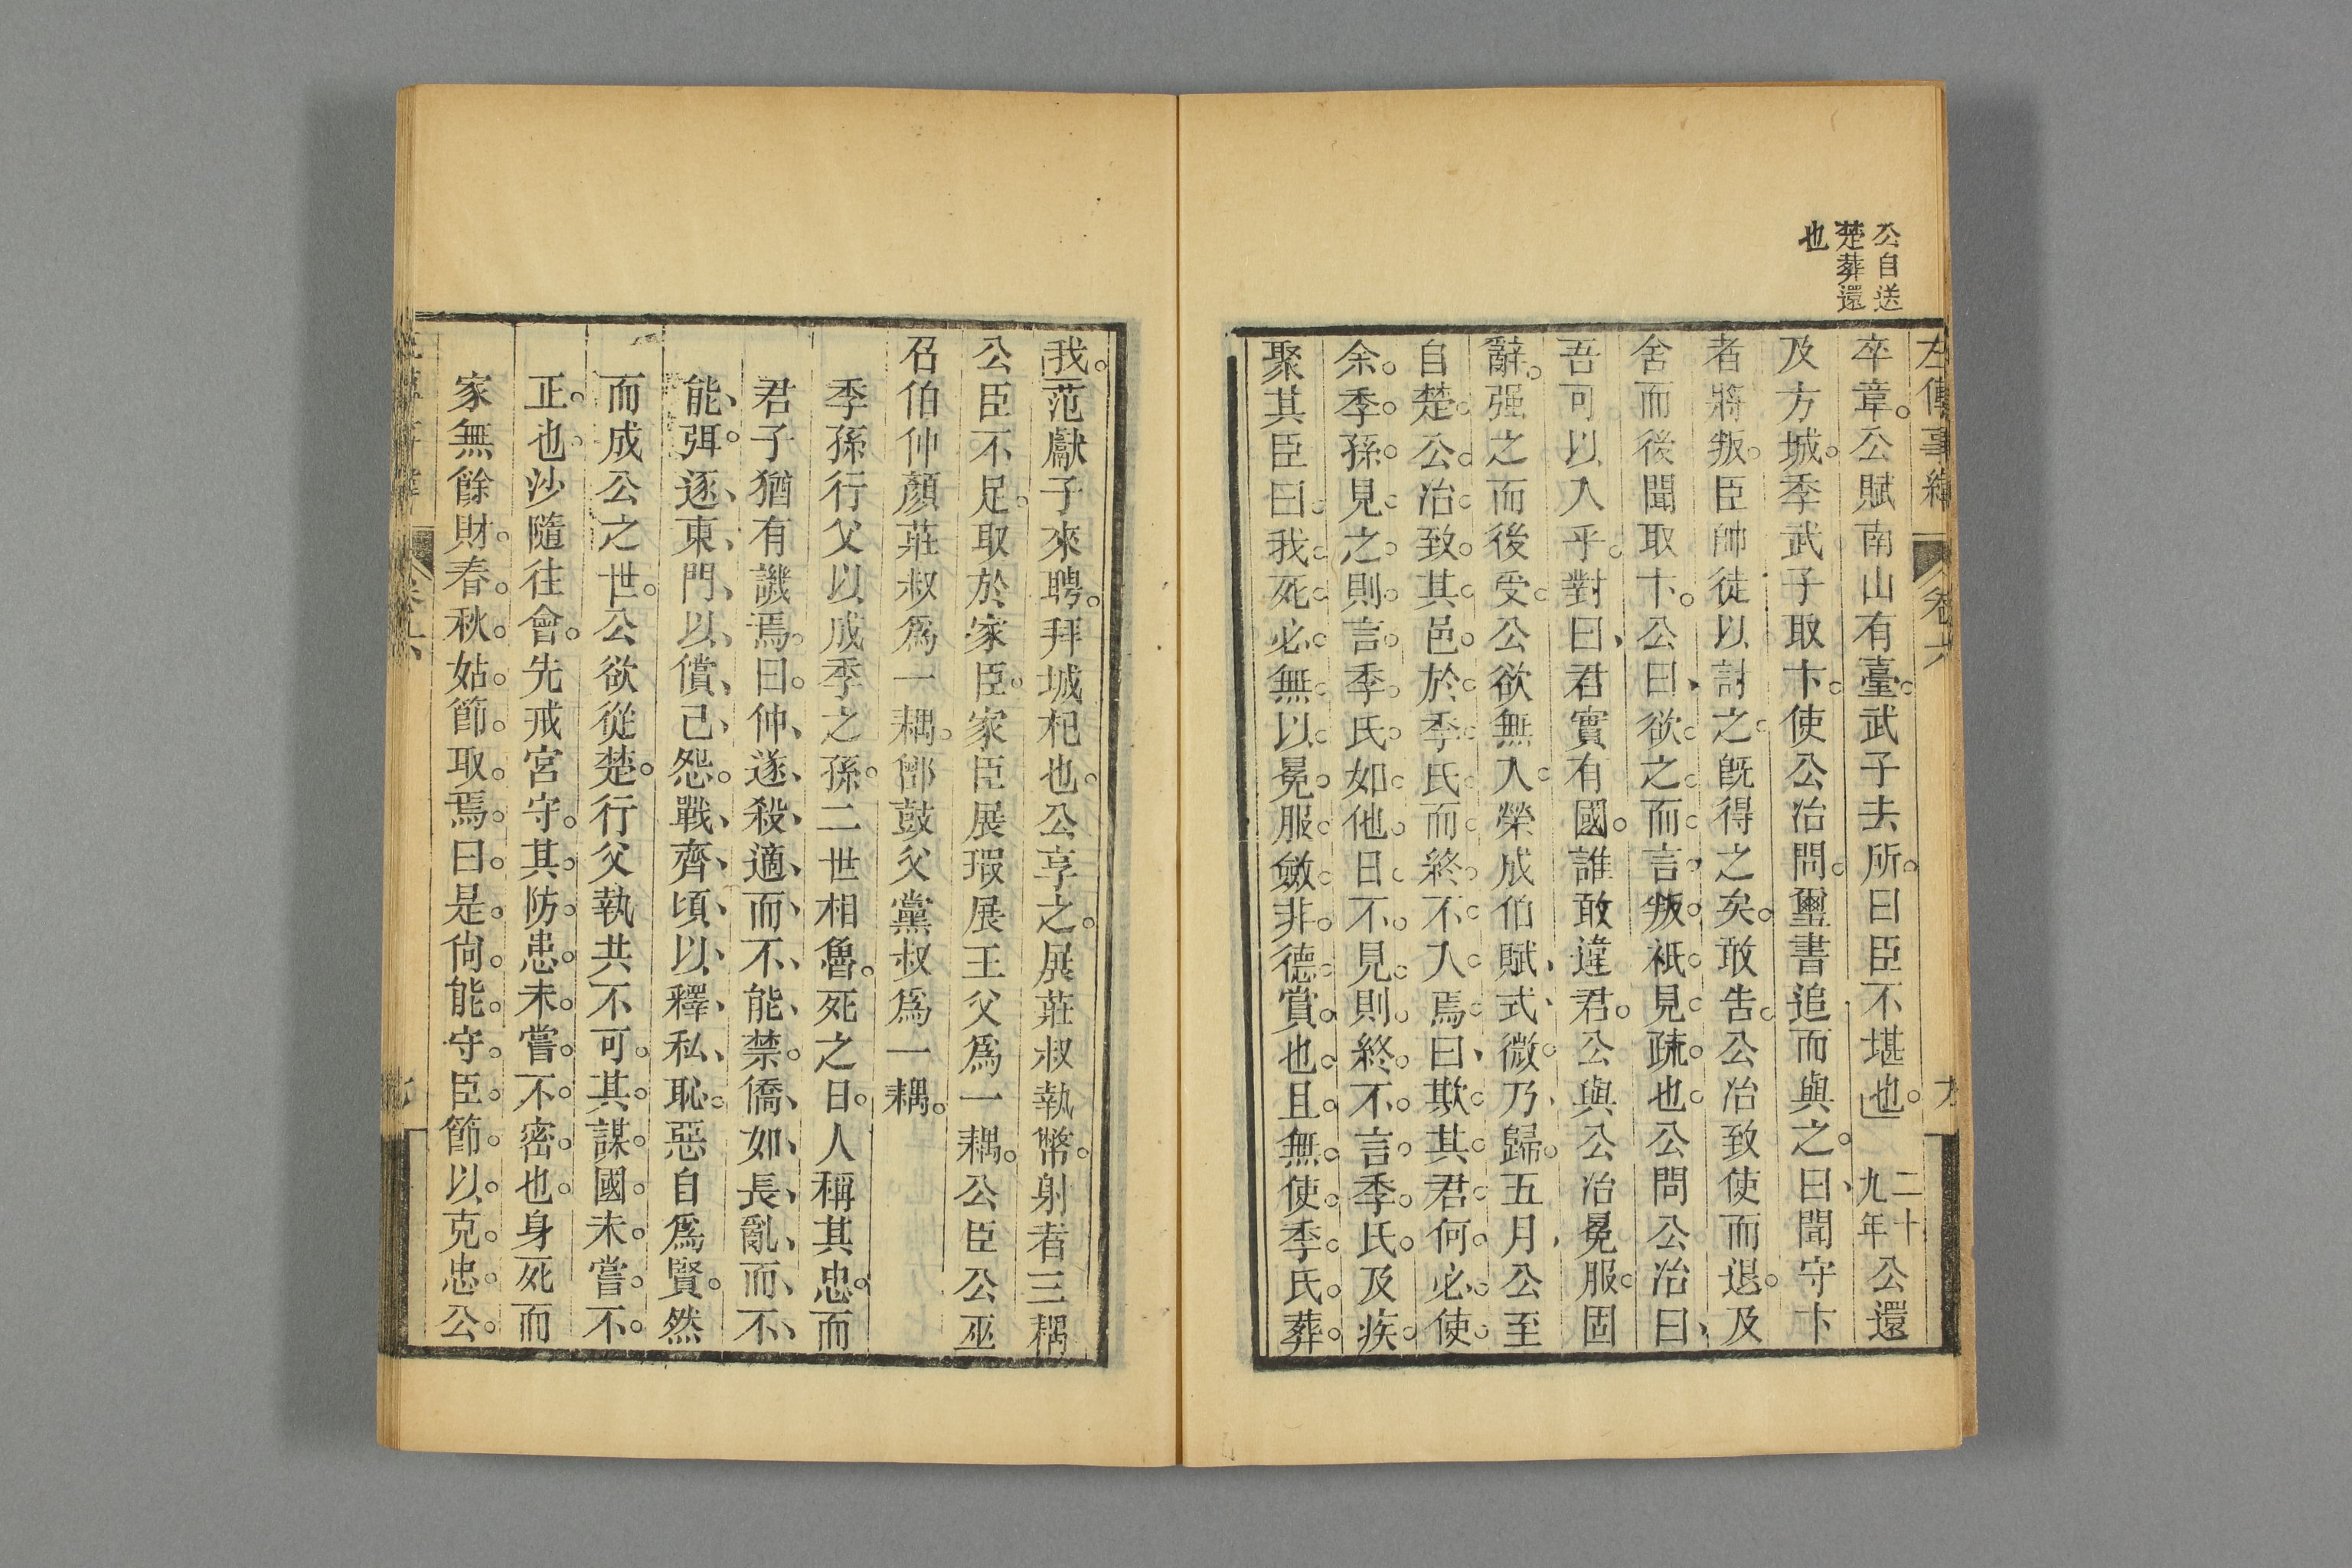 公自送
楚葬還
也
左傳事緯
卷六
卒章。公賦南山有臺。武子去所。曰臣不堪也。二十九年公還
及方城。季武子取卞。使公冶問。璽書追而與之。曰、聞守卞
者將叛。臣帥徒以討之。旣得之矣。敢告。公冶致使而退。及
舍而後聞取卞。公曰、欲之。而言叛。祇見疏也。公問公冶曰、
吾可以入乎。對曰、君實有國。誰敢違君。公與公冶冕服。固
辭。强之而後受。公欲無入。榮成伯賦、式微。乃歸。五月、公至
自楚。公冶致其邑於季氏而終不入焉。曰、欺其君何必使
余。季孫見之。則言季氏如他日。不見則終不言季氏。及疾。
聚其臣曰。我死。必無以冕服斂。非德賞也。且無使季氏葬。
我。范獻子來聘。拜城杞也。公享之。展莊叔執幣。射者三耦
公臣不足。取於家臣。家臣展瑕展王父爲一耦。公臣公巫
召伯仲顏莊叔爲一耦。鄫鼓父黨叔爲一耦。
季孫行父以成季之孫。二世相魯。死之日。人稱其忠。而
君子猶有譏焉。曰。仲、遂、殺、適、而、不、能、禁。僑、如、長、亂、而、不、
能、弭。逐、東、門、以、償、己、怨。戰、齊、頃、以、釋、私、恥。惡自爲賢。然
而成公之世。公欲從楚。行父執共不可。其謀國未嘗不。
正。也。沙隨往會。先戒宮守。其防患未嘗不密也。身死而
家無餘財。春秋姑節取焉。曰。是尙能守臣節。以克忠公。